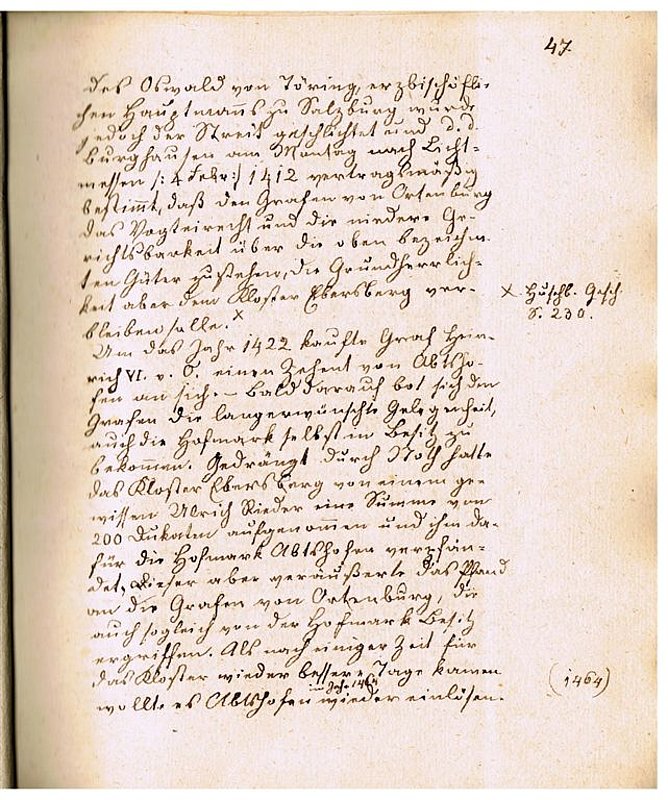 47.
des Oswald von Töring, erzbischöfli-
chen Hauptmanns zu Salzburg wurde
jedoch der Streit geschlichtet und d. d.
Burghausen am Montag nach Licht-
messen /: 4 Febr :/ 1412 vertragsmäßig
bestimmt, daß den Grafen von Ortenburg
das Vogteirecht und die niedere Ge-
richtsbarkeit über die oben bezeichne-
ten Güter zustehen, die Grundherrlich-
keit aber dem Kloster Ebersberg ver-
bleiben solle. x
x Huschb. Gesch
S. 230.
Um das Jahr 1422 kaufte Graf Hein-
rich VI. v. O. einen Zehent von Abtsho-
fen an sich. – Bald darauf bot sich den
Grafen die langerwünschte Gelegenheit,
auch die Hofmark selbst in Besitz zu
bekommen. Gedrängt durch Noth hatte
das Kloster Ebersberg von einem ge-
wissen Ulrich Rieder eine Summe von
200 Dukaten aufgenommen und ihm da-
für die Hofmark Abtshofen verpfän-
det, dieser aber veräußerte das Pfand
an die Grafen von Ortenburg, die
auch sogleich von der Hofmark Besitz
ergriffen. Als nach einiger Zeit für
das Kloster wieder bessere Tage kamen
im Jahr 1464
wollte es Abtshofen wieder einlösen.
(1464)